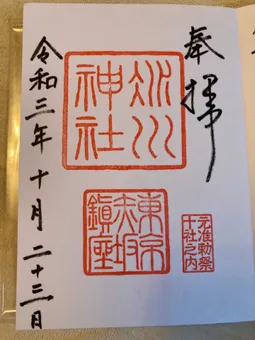 奉拝
氷川神社
東京赤坂鎮座
元准勅祭
十社之内
令和三年十月二十三日